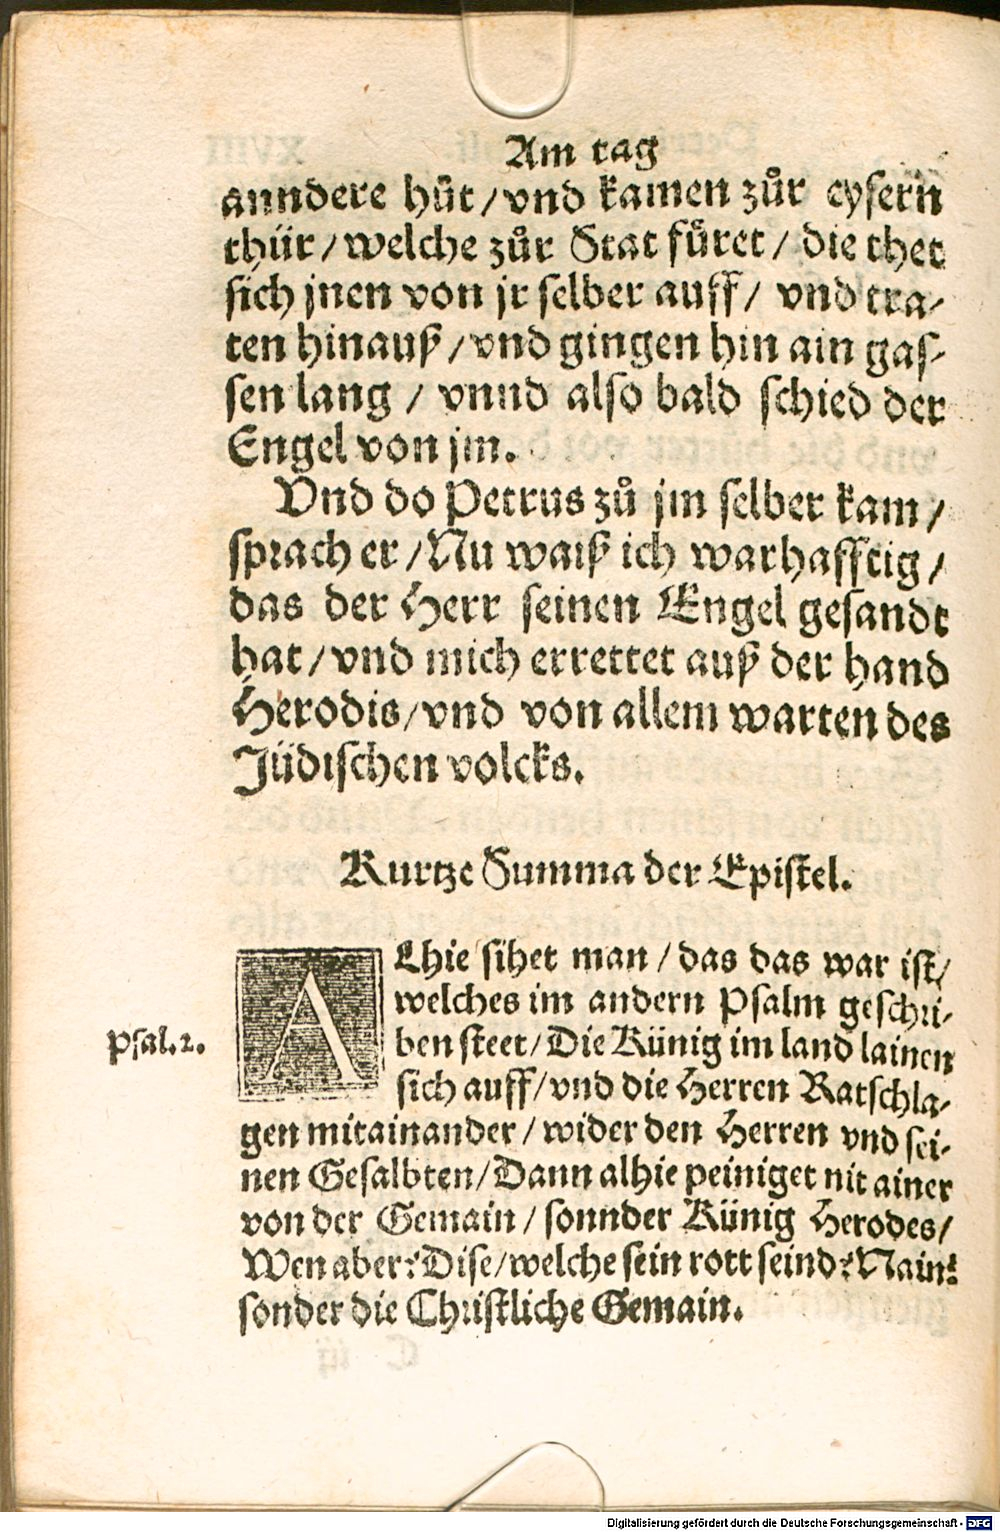 Am tag
anndere hůt / vnd kamen zůr eysern
thür / welche zůr Stat fůret / die thet
sich jnen von jr selber auff / vnd tra-
ten hinauß / vnd gingen hin ain gas-
sen lang / vnnd also bald schied der
Engel von jm.
Vnd do Petrus zů jm selber kam /
sprach er / Nu waiß ich warhafftig /
das der Herr seinen Engel gesandt
hat / vnd mich errettet auß der hand
Herodis / vnd von allem warten des
Jüdischen volcks.
Kurtze Summa der Epistel.
ALhie sihet man / das das war ist /
welches im andern Psalm geschri-
Psal. 2. ben steet / Die Künig im land lainen
sich auff / vnd die Herren Ratschla-
gen mitainander / wider den Herren vnd sei-
nen Gesalbten / Dann alhie peiniget nit ainer
von der Gemain / sonnder Künig Herodes /
Wen aber? Dise / welche sein rott seind? Nain!
sonder die Christliche Gemain.
Digitalisierung gefördert durch die Deutsche Forschungsgemeinschaft - DFG